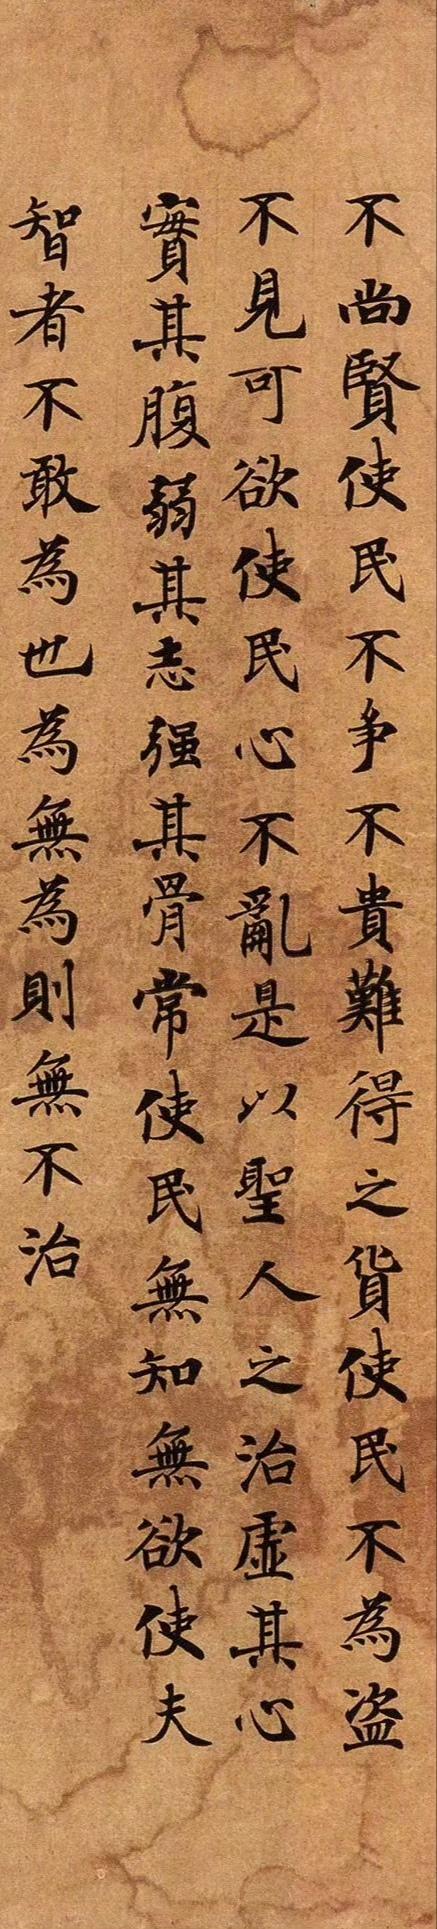 不尚賢使民不爭不貴難得之貨使民不為盜
不見可欲使民心不亂是以聖人之治虛其心
實其腹弱其志强其骨常使民無知無欲使夫
智者不敢為也為無為則無不治